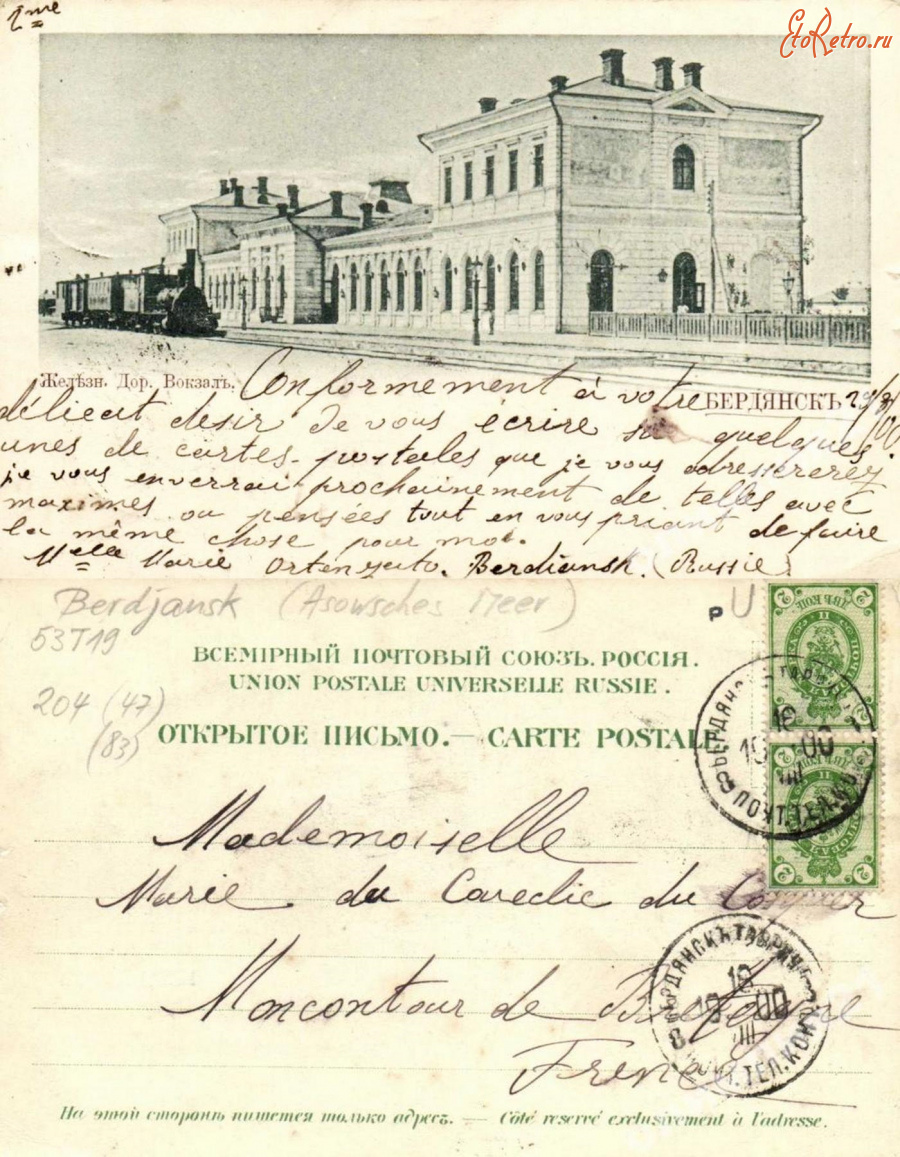 2me
EtoRetro.ru
Желѣзн. Дор. Вокзалъ.
БЕРДЯНСКЪ
Conformement à votre
délicat desir de vous écrire sur quelques
unes de cartes-postales que je vous adressererez
je vous enverrai prochainement de telles avec
maximes ou pensées tout en vous priant de faire
la même chose pour moi.
Melle Marie Berdiansk. (Russie)
Berdjansk (Asowsches Meer)
53T19
204 (47)
(83)
ВСЕМІРНЫЙ ПОЧТОВЫЙ СОЮЗЪ. РОССІЯ.
UNION POSTALE UNIVERSELLE RUSSIE.
ОТКРЫТОЕ ПИСЬМО.— CARTE POSTALE
БЕРДЯНСКЪ
ПОЧТ.ТЕЛ.КОН
Mademoiselle
Marie du du
БЕРДЯНСКЪ ТАВРИЧ
ПОЧТ.ТЕЛ.КОН
Moncontour de Bretagne
На этой сторонѣ пишется только адресъ. — Côté reservé exclusivement à l'adresse.